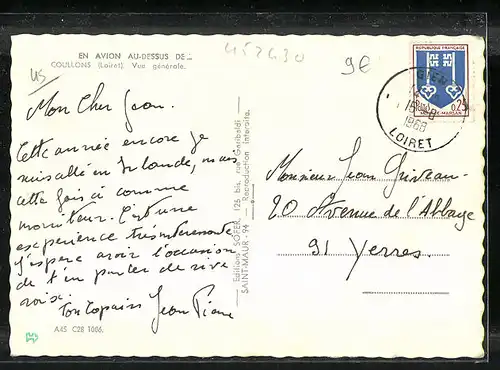 EN AVION AU-DESSUS DE...
COULLONS (Loiret). Vue générale.
457430
9€
45
Mon Cher Jean.
Cette année encore je
suis allé en Irlande, mais
cette fois çi comme
moniteur. C'est une
experience très interessante
J'espère avoir l'occasion
de t'en parler de vive
voix.
Ton Copain Jean Pierre
A45 C28 1006.
Editions SOFER, 126 bis, rue Garibaldi
SAINT-MAUR - 94 — Reproduction interdite.
REPUBLIQUE FRANÇAISE
0,25
MT-DE-MARSAN
GIEN
15 -8
1968
LOIRET
Monsieur Jean
20 Avenue de l'Abbaye
91 Yerres.